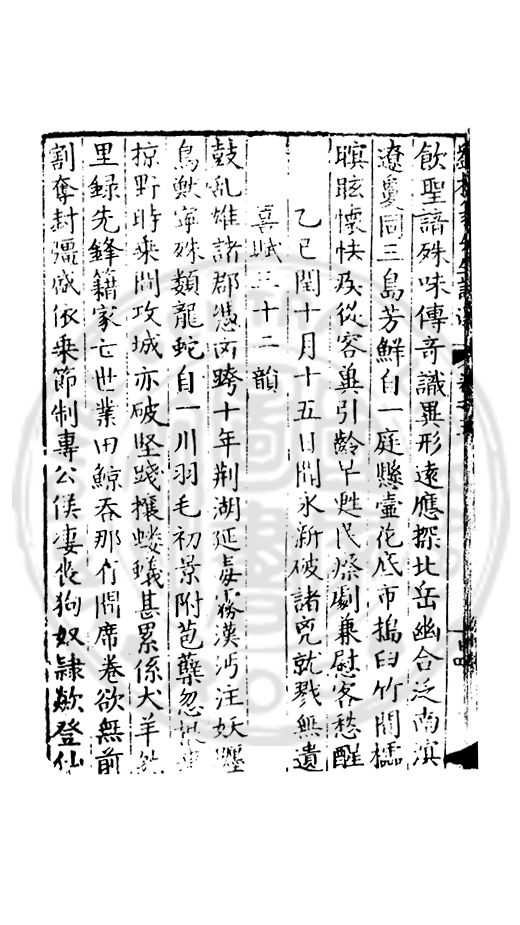 飲聖諳殊味傳奇識異形遠應探北岳幽合泛南溟
遼敻同三島芳鮮自一庭懸壺花底市搗臼竹間櫺
瞑眩懷快及從容與引齡早甦民瘵劇兼慰客愁醒
乙巳閏十月十五日聞永新破諸兇就戮無遺
喜賦三十二韻
鼓亂雄諸郡憑凶跨十年荆湖延毒霧漢沔注妖躔
鳥獸寧殊類龍蛇自一川羽毛初景附苞蘖忽
掠野時乘間攻城亦破堅踐攘螻蟻甚累係犬羊
里録先鋒籍家亡世業田鯨吞那有間席卷欲無前
割奪封疆盛依乘節制專公侯悽喪狗奴隷歘登仙